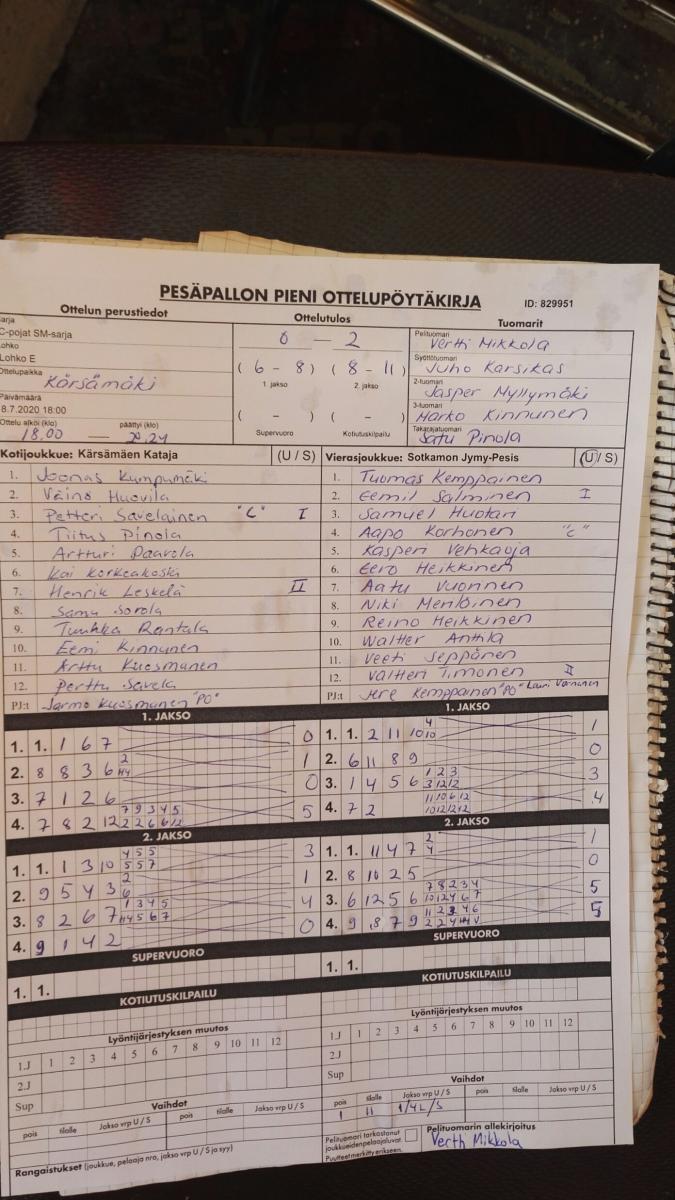 PESÄPALLON PIENI OTTELUPÖYTÄKIRJA
ID: 829951
Ottelun perustiedot
Ottelutulos
Tuomarit
C-pojat SM-sarja
Lohko E
Ottelupaikka
Kärsämäki
Päivämäärä
8.7.2020 18:00
Ottelu alkoi (klo) päättyi (klo)
18.00 —
0 — 2
( 6 - 8 ) ( 8 - 11 )
1. jakso 2. jakso
( - ) ( - )
Supervuoro Kotiutuskilpailu
Pelituomari
Vertti Mikkola
Syöttötuomari
Juho Karsikas
2-tuomari
Jasper Myllymäki
3-tuomari
Marko Kinnunen
Takarajatuomari
Satu Pinola
Kotijoukkue: Kärsämäen Kataja (U / S)
1. Joonas Kumpumäki
2. Väinö Huovila
3. Petteri Savelainen "C" I
4. Tiitus Pinola
5. Artturi Paavola
6. Kai Korkeakoski
7. Henrik Leskelä II
8. Samu Sorola
9. Tuukka Rantala
10. Eemi Kinnunen
11. Arttu Kuosmanen
12. Perttu Savela
PJ:t Jarmo Kuosmanen "PO"
Vierasjoukkue: Sotkamon Jymy-Pesis (U / S)
1. Tuomas Kemppainen
2. Eemil Salminen I
3. Samuel Huotari
4. Aapo Korhonen "C"
5. Kasperi Vehkaoja
6. Eero Heikkinen
7. Aatu Vuorinen
8. Niki
9. Reino Heikkinen
10. Waltter Anttila
11. Veeti Seppänen
12. Valtteri Timonen II
PJ:t Jere Kemppainen "PO" Lauri
1. JAKSO
1. 1. 1 6 7 0
2. 8 8 3 6 1
3. 7 1 2 6 0
4. 7 8 2 12 5
2. JAKSO
1. 1. 1 3 10 3
2. 9 5 4 3 1
3. 8 2 6 7 4
4. 9 1 4 2 0
SUPERVUORO
1. 1.
KOTIUTUSKILPAILU
1. JAKSO
1. 1. 2 11 10 1
2. 6 11 8 9 0
3. 1 4 5 6 3
4. 7 2 4
2. JAKSO
1. 1. 11 4 7 1
2. 8 10 2 5 0
3. 6 12 5 6 5
4. 9 8 7 9 5
SUPERVUORO
1. 1.
KOTIUTUSKILPAILU
Lyöntijärjestyksen muutos
1.J 1 2 3 4 5 6 7 8 9 10 11 12
2.J
Sup
Vaihdot
pois tilalle Jakso vrp U / S pois tilalle Jakso vrp U / S
Rangaistukset (joukkue, pelaaja nro, jakso vrp U / S ja syy)
Lyöntijärjestyksen muutos
1.J 1 2 3 4 5 6 7 8 9 10 11 12
2.J
Sup
Vaihdot
pois tilalle Jakso vrp U / S pois tilalle Jakso vrp U / S
1 11 1/4L/S
Pelituomari tarkastanut
joukkueidenpelaajaluvat.
Puutteet merkitty erikseen.
Pelituomarin allekirjoitus
Vertti Mikkola